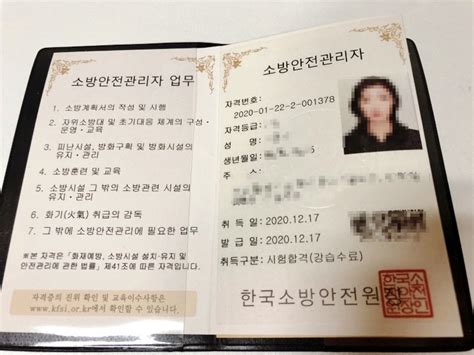 소방안전관리자 업무
1. 소방계획서의 작성 및 시행
2. 자위소방대 및 초기대응 체계의 구성·
운영·교육
3. 피난시설, 방화구획 및 방화시설의
유지·관리
4. 소방훈련 및 교육
5. 소방시설 그 밖의 소방관련 시설의
유지·관리
6. 화기(火氣) 취급의 감독
7. 그 밖에 소방안전관리에 필요한 업무
※본 자격은「화재예방, 소방시설 설치·유지 및
안전관리에 관한 법률」제41조에 따른 자격입니다.
자격증의 진위 확인 및 교육이수사항은
www.kfsi.or.kr에서 확인할 수 있습니다.
소방안전관리자
자격번호:
2020-01-22-2-001378
자격등급:
성 명:
생년월일:
주 소:
취 득 일: 2020.12.17
발 급 일: 2020.12.17
취득구분: 시험합격(강습수료)
한국소방안전원